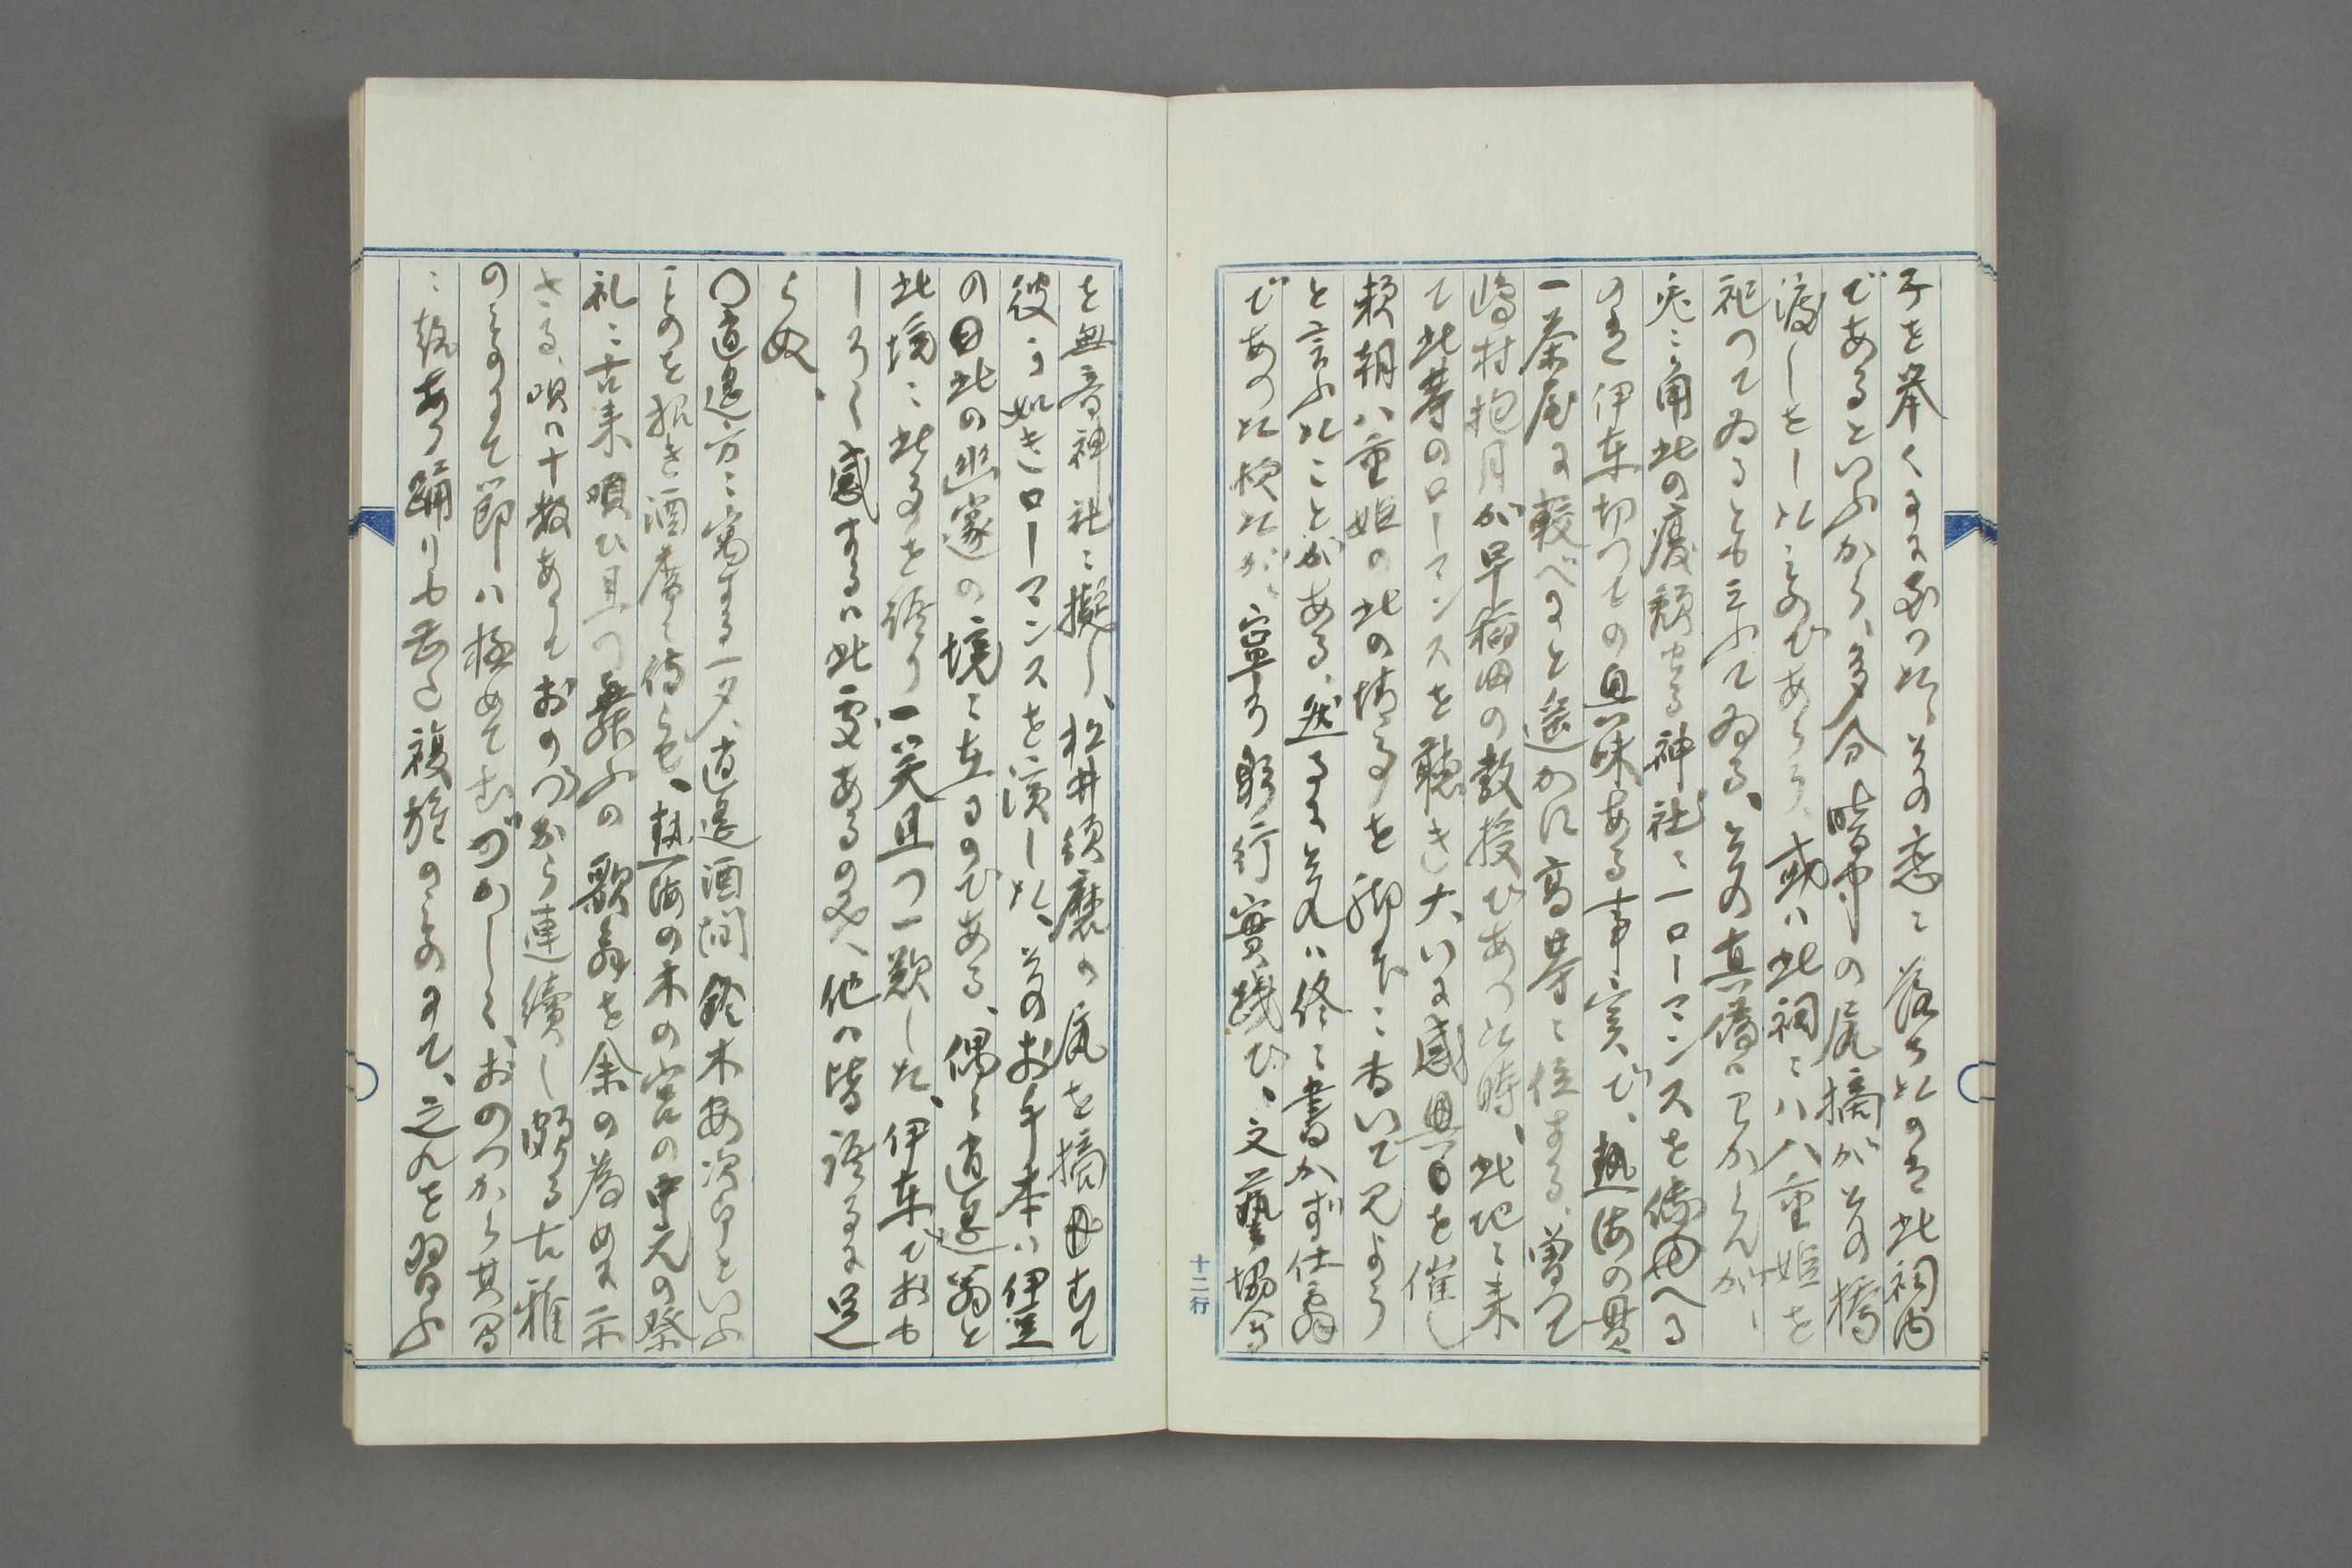 子を挙くるに至つた、其の恋に落ちたのは此祠内
であるといふから、多分暗中の尻摘が其の橋
渡しをしたものであらう、或ハ此祠にハ八重姫を
祀つてゐるとも云ふてゐる、其の真偽ハ分からんが、
兎に角此の廃頽せる神社に一ローマンスを伝へる
のは伊東切つての興味ある事実で、熱海の貫
一茶屋に較べると遥かに高等に位する、曽つて
嶋村抱月が早稲田の教授であつた時、此地に来
て此等のローマンスを聴き大いに感興を催し
頼朝八重姫の此の情事を脚本に書いて見よう
と言ふたことがある、然るに其れハ終に書かず仕舞
であつた様だが、寧ろ躬行実践で、文藝協会
を無音神社に擬し、松井須磨の尻を摘むて
彼の如きローマンスを演した、其のお手本ハ伊豆
の国此の幽邃の境に在るのである、偶々逍遥翁と
此境に此事を語り一笑且つ一歎した、伊東でおも
しろく感するハ此処あるのみ、他ハ皆語るに足
らぬ、
〇逍遥方に寓する一夕、逍遥酒間鈴木安次郎といふ
ものを招き酒席に侍らせ、熱海の木の宮の中元の祭
礼に古来唄ひ且つ舞ふの歌舞を余の為めに示
さる、唄ハ十数ありておのづから連続し頗る古雅
のものにて節ハ極めてむづかしく、おのつから其間
に緩あり踊りも甚た複雑のものにて、之れを習ふ
十二行